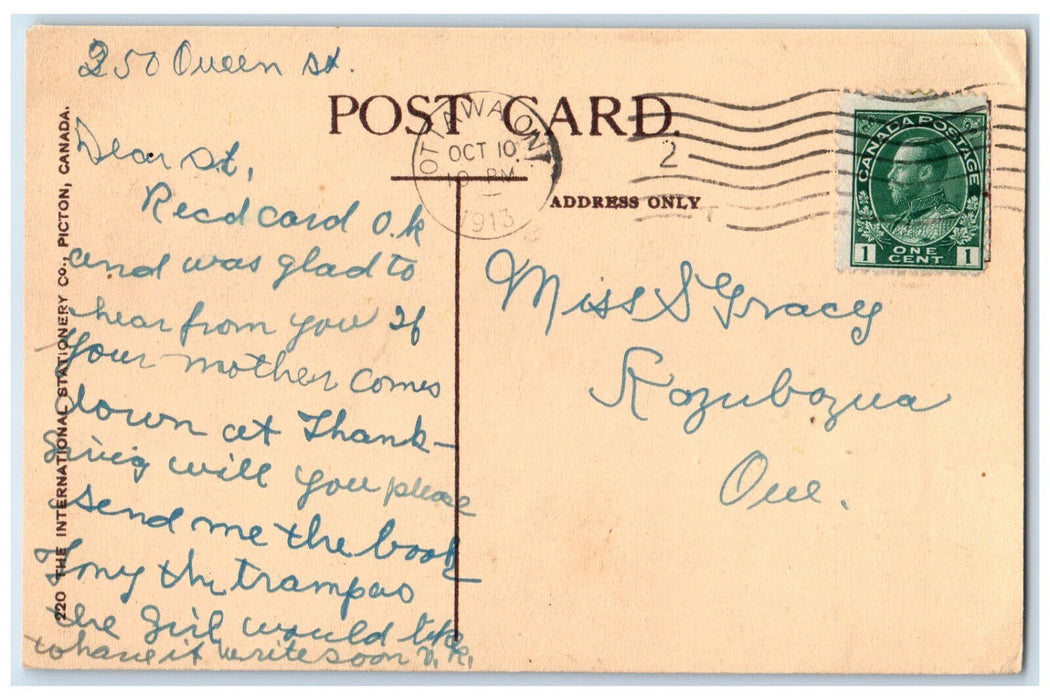 250 Queen st.
POST CARD.
OTTAWA, ONT.
OCT 10
10 PM
1913
2
ADDRESS ONLY
CANADA POSTAGE
1 ONE CENT 1
220 THE INTERNATIONAL STATIONERY CO., PICTON, CANADA.
Dear St,
Recd card O.K
and was glad to
hear from you If
your mother comes
down at Thank-
Giving will you please
send me the book
Tony the tramp as
the girl would like
to have it write soon V.R.
Miss S Gracey
Kazubazua
Que.